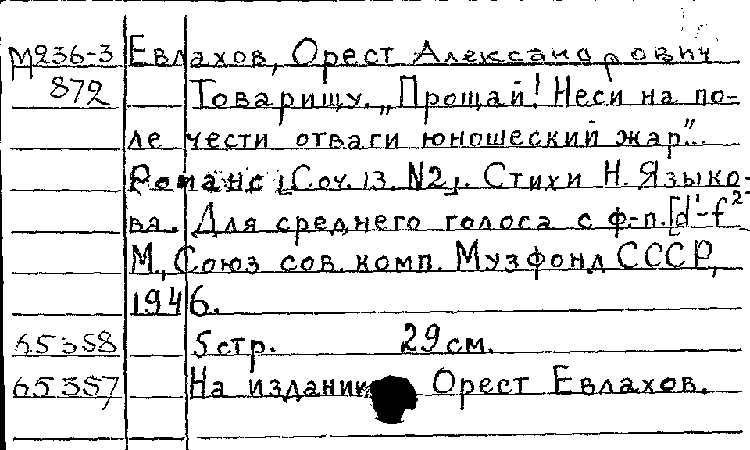 М236-3 Евлахов, Орест Александрович
872 Товарищу. „Прощай! Неси на по-
ле чести отваги юношеский жар"...
Романс [Соч. 13. N2]. Стихи Н. Языко-
ва. Для среднего голоса с ф-п. [d'-f²
М., Союз сов. комп. Музфонд СССР,
1946.
65358 5 стр. 29 см.
65357 На издании Орест Евлахов.